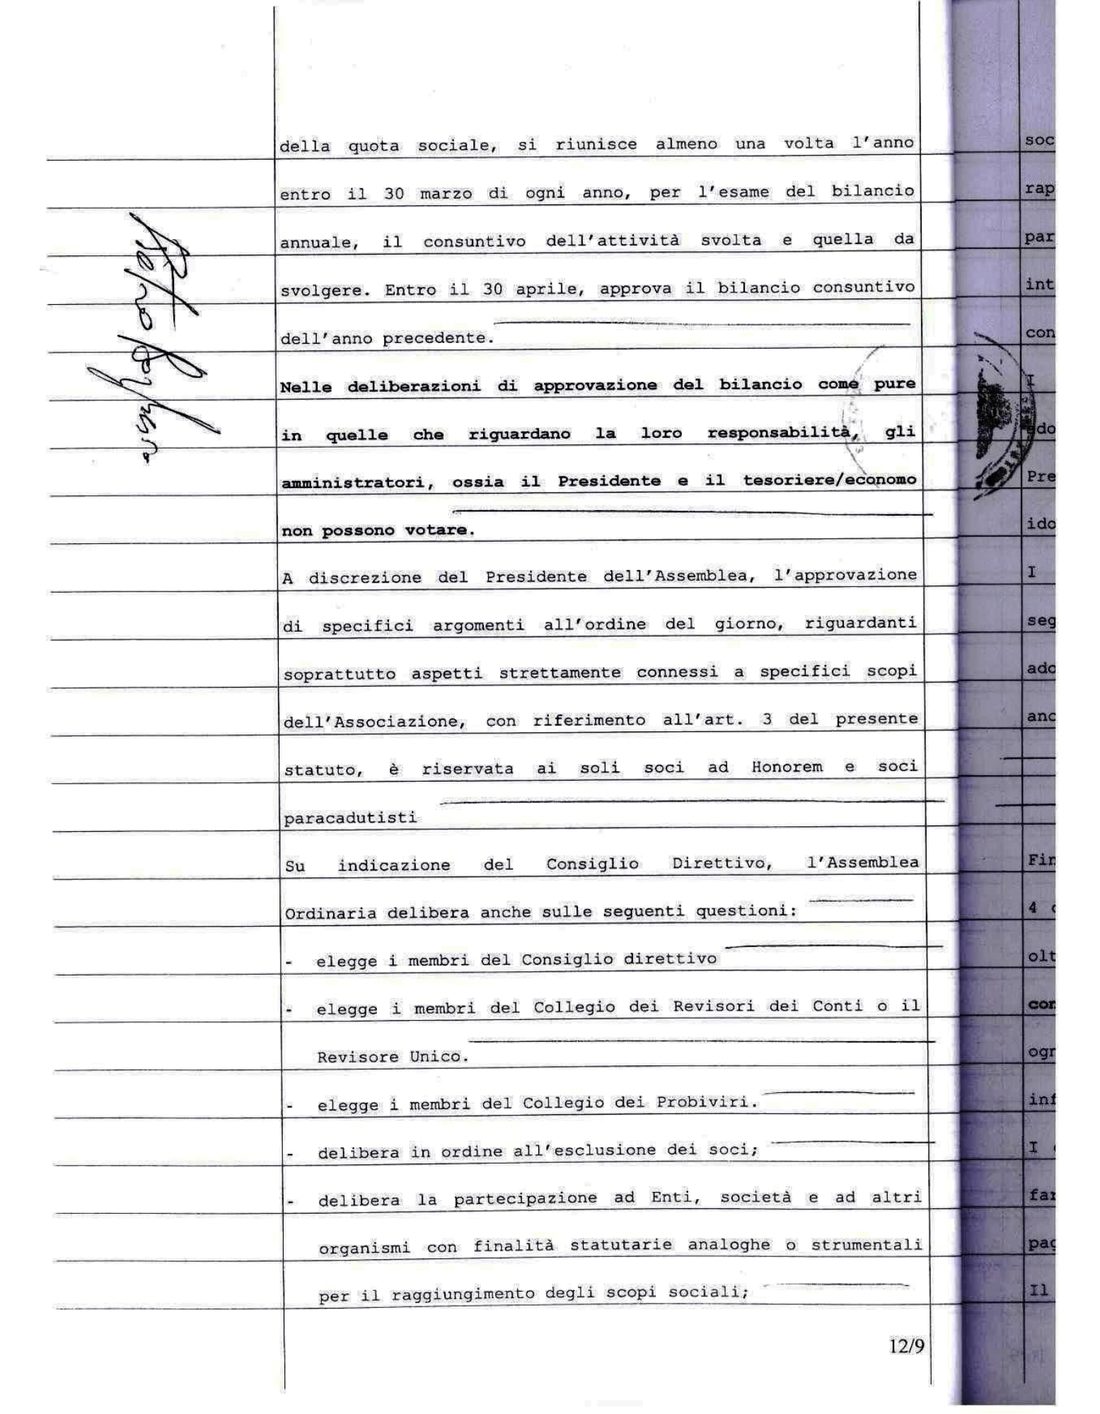 della quota sociale, si riunisce almeno una volta l'anno
entro il 30 marzo di ogni anno, per l'esame del bilancio
annuale, il consuntivo dell'attività svolta e quella da
svolgere. Entro il 30 aprile, approva il bilancio consuntivo
dell'anno precedente.
Nelle deliberazioni di approvazione del bilancio come pure
in quelle che riguardano la loro responsabilità, gli
amministratori, ossia il Presidente e il tesoriere/economo
non possono votare.
A discrezione del Presidente dell'Assemblea, l'approvazione
di specifici argomenti all'ordine del giorno, riguardanti
soprattutto aspetti strettamente connessi a specifici scopi
dell'Associazione, con riferimento all'art. 3 del presente
statuto, è riservata ai soli soci ad Honorem e soci
paracadutisti
Su indicazione del Consiglio Direttivo, l'Assemblea
Ordinaria delibera anche sulle seguenti questioni:
- elegge i membri del Consiglio direttivo
- elegge i membri del Collegio dei Revisori dei Conti o il
Revisore Unico.
- elegge i membri del Collegio dei Probiviri.
- delibera in ordine all'esclusione dei soci;
- delibera la partecipazione ad Enti, società e ad altri
organismi con finalità statutarie analoghe o strumentali
per il raggiungimento degli scopi sociali;
12/9
soc
rap
par
int
con
Pre
ido
I
seg
ado
anc
Fin
4
olt
con
ogn
inf
I
far
pag
Il